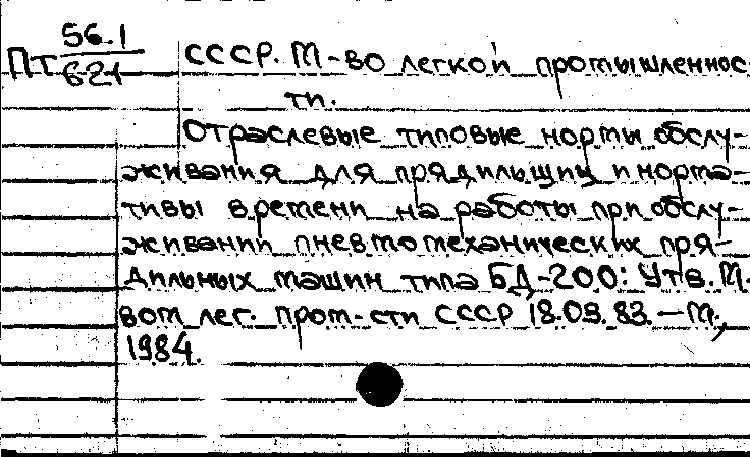 ПТ 56.1/621
СССР. М-во легкой промышленнос
ти.
Отраслевые типовые нормы обслу-
живания для прядильщиц и норма-
тивы времени на работы при обслу-
живании пневмомеханических пря-
дильных машин типа БД-200: Утв. М.
вом лег. пром-сти СССР 18.09.83. – М.,
1984.